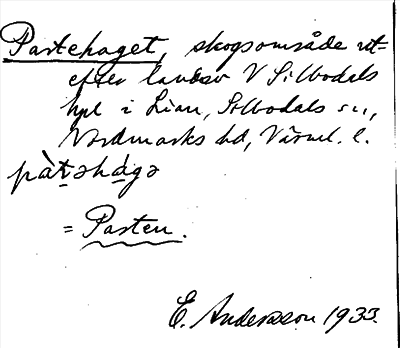 Partehaget, skogsområde ut-
efter landsv V Silbodals
hpl i Lian, Silbodals sn,
Nordmarks hd, Värml. l.
pàt̠əhágə
= Parten.
E. Andersson 1933.